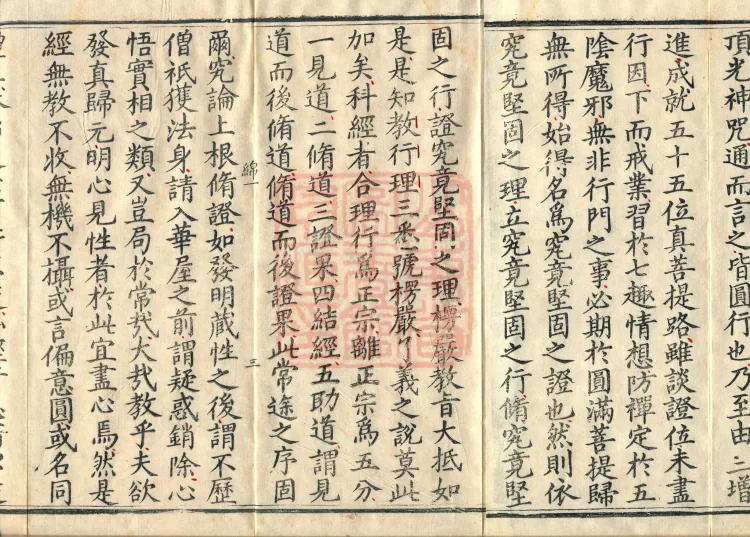 頂光神咒通而言之皆圓行也乃至由三增
進成就五十五位真菩提路雖談證位未盡
行因下而戒業習於七趣情想防禪定於五
陰魔邪無非行門之事必期於圓滿菩提歸
無所得始得名為究竟堅固之證也然則依
究竟堅固之理立究竟堅固之行脩究竟堅
固之行證究竟堅固之理楞嚴教旨大抵如
是是知教行理三悉號楞嚴了義之說莫此
加矣科經者合理行為正宗離正宗為五分
一見道二脩道三證果四結經五助道謂見
道而後脩道脩道而後證果此常途之序固
綿一
三
爾究論上根脩證如發明蔵性之後謂不歷
僧祇獲法身請入華屋之前謂疑惑銷除心
悟實相之類又豈局於常㢤大㢤教乎夫欲
發真歸元明心見性者於此宜盡心焉然是
經無教不收無機不攝或言偏意圓或名同